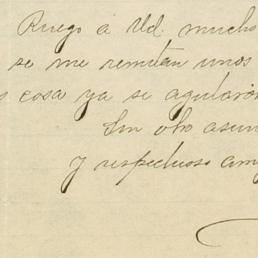 Ruego á Ud. mucho
se me remitan unos
s cosa ya se agularon
Sin otro asun
y respectuoso am